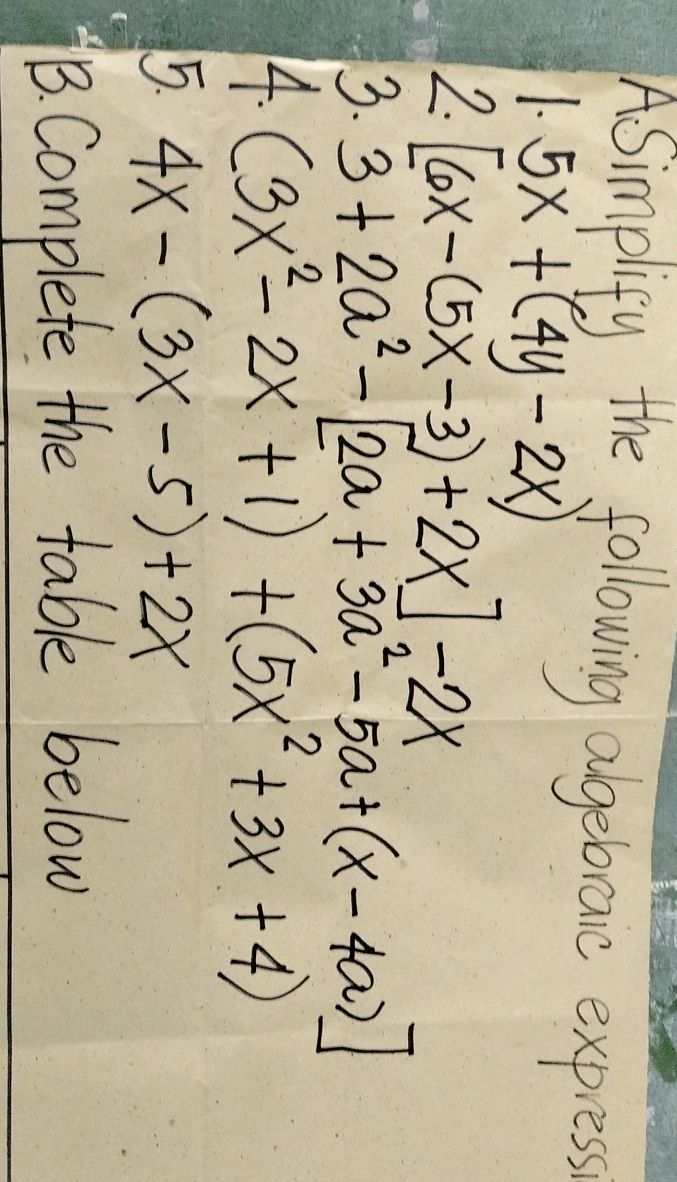 A. Simplify the following algebraic expressi
1. 5x + (4y - 2x)
2. [6x - (5x - 3) + 2x] - 2x
3. 3 + 2a² - [2a + 3a² - 5a + (x - 4a)]
4. (3x² - 2x + 1) + (5x² + 3x + 4)
5. 4x - (3x - 5) + 2x
B. Complete the table below